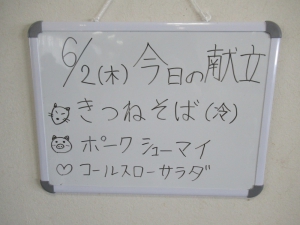 6/2(木)今日の献立
きつねそば(冷)
ポークシューマイ
♡コールスローサラダ